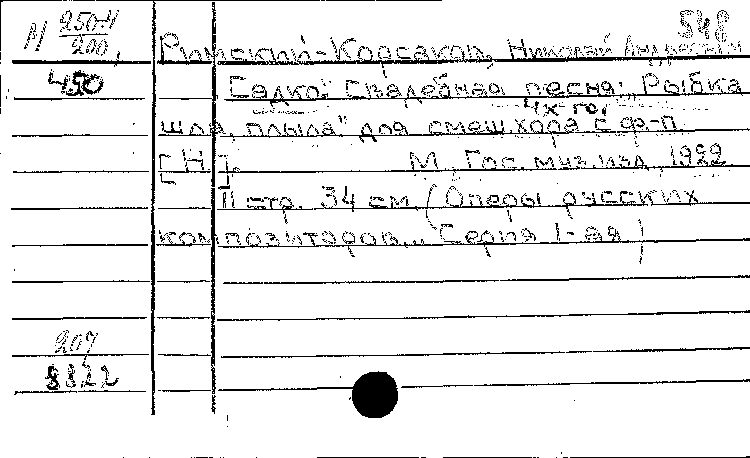 548
М 250-4/200, Римский-Корсаков, Николай Андреевич
450 Садко. Свадебная песня: „Рыбка
4х го.
шла, плыла" для смеш. хора с ф-п.
[Н.]. М., Гос. муз. изд., 1922
11 стр. 34 см. (Оперы русских
композиторов... Серия 1-ая)
207
8822